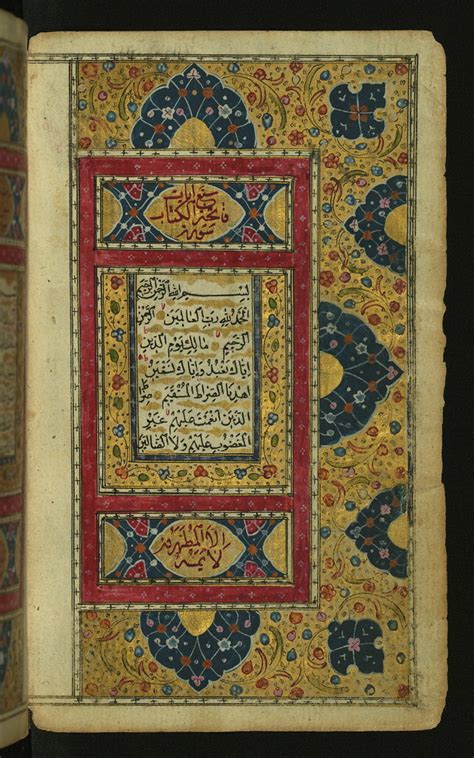 سورة
فاتحة الكتاب
سبع ايات
بسم الله الرحمن الرحيم
الحمد لله رب العالمين الرحمن
الرحيم مالك يوم الدين
اياك نعبد واياك نستعين
اهدنا الصراط المستقيم صراط
الذين انعمت عليهم غير
المغضوب عليهم ولا الضالين
لا يمسه
الا المطهرون